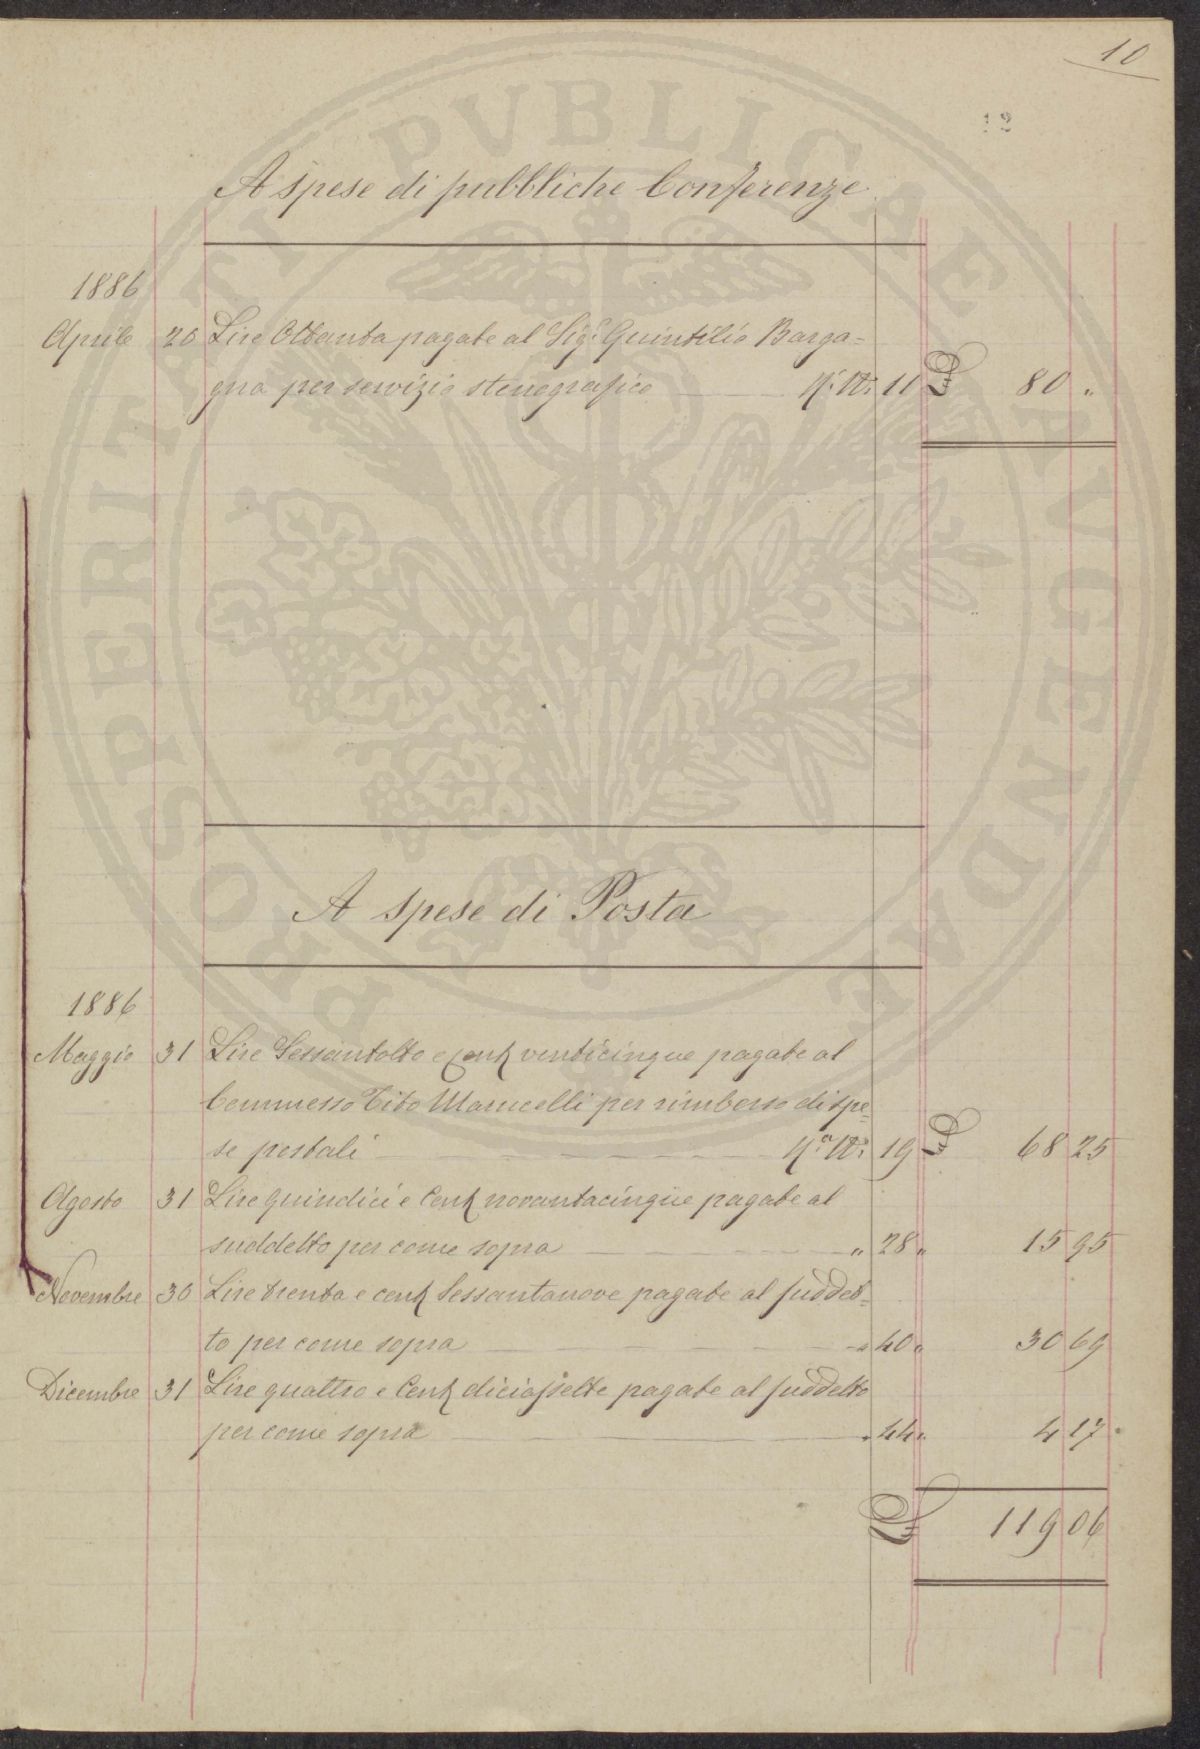 10
12
A spese di pubbliche Conferenze
1886
Aprile 20 Lire Ottanta pagate al Sig.r Quintilio Barga=
gna per servizio stenografico 11 80 "
A spese di Posta
1886
Maggio 31 Lire Sessantotto e Cent venticinque pagate al
Commesso Tito Marucelli per rimborso di spe=
se postali 19 68 25
Agosto 31 Lire quindici e Cent novantacinque pagate al
suddetto per come sopra " 28 " 15 95
Novembre 30 Lire trenta e cent sessantanove pagate al suddet=
to per come sopra " 40 " 30 69
Dicembre 31 Lire quattro e Cent diciassette pagate al suddetto
per come sopra " 44 " 4 17
119 06
PROSPERITATI PVBLICAE AVGENDAE